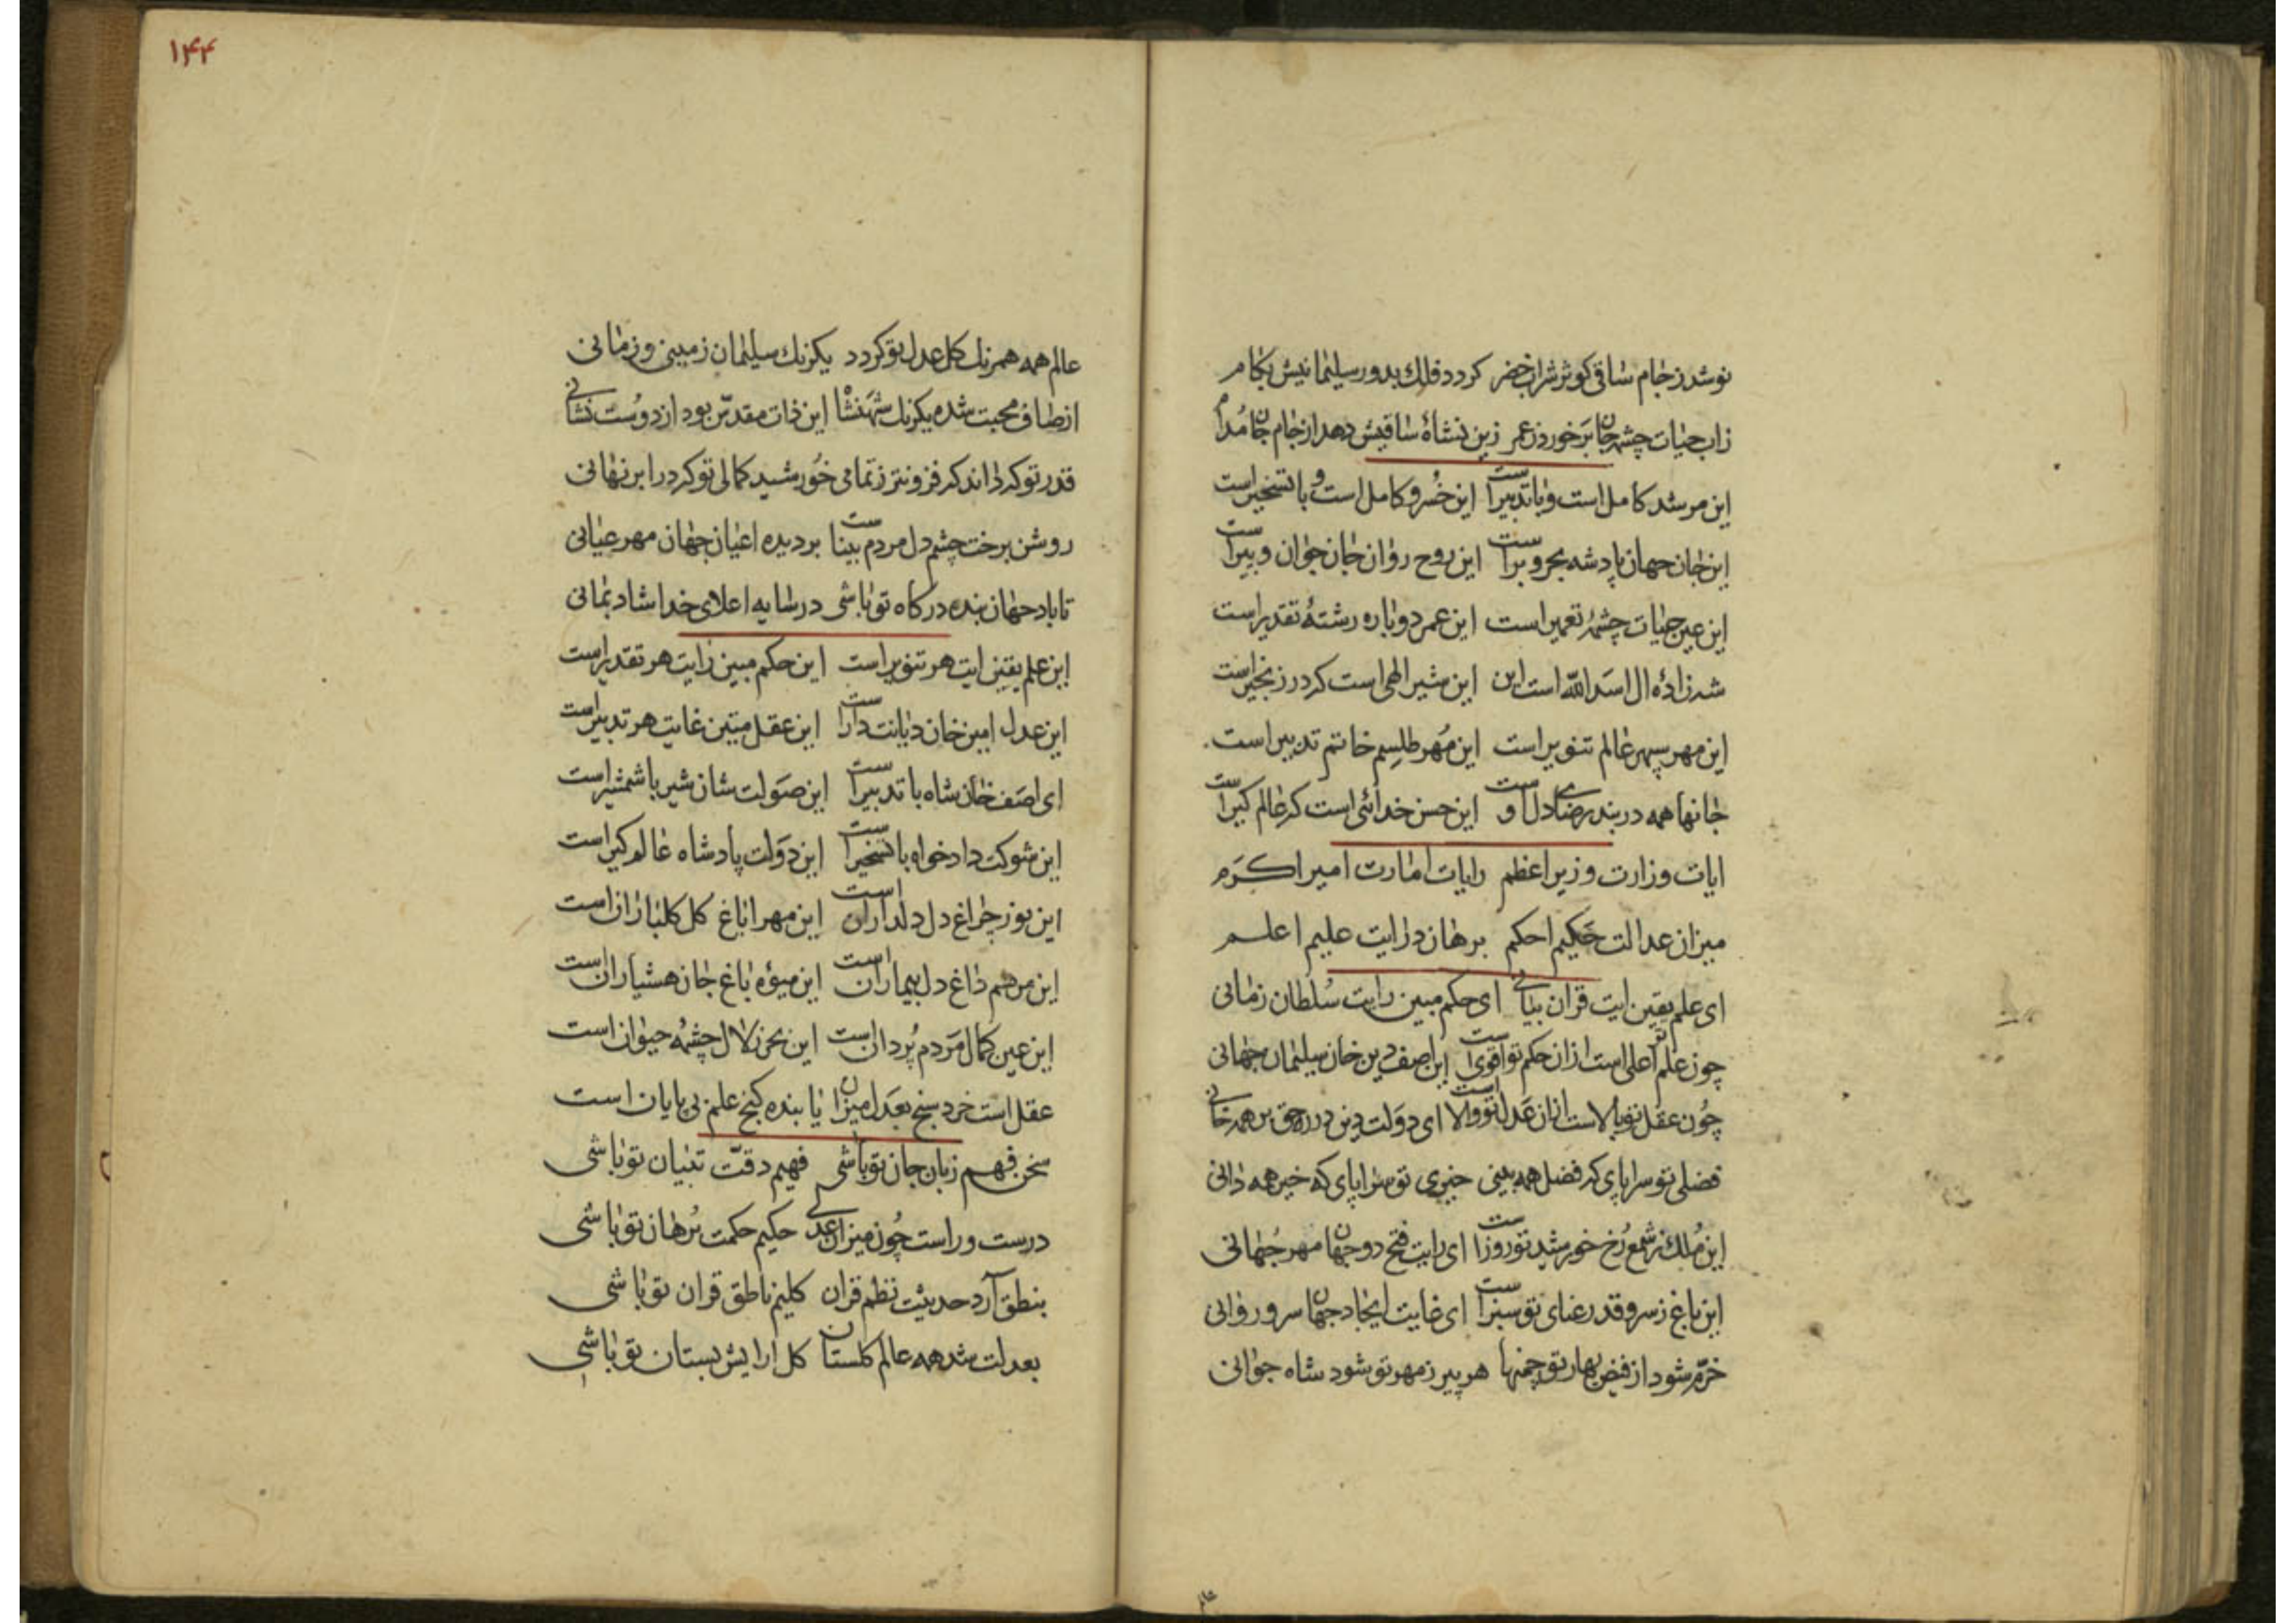 نوشد ز جام ساقی کوثر شراب خضر کردد فلك بدور سلیمانیش بکام
زاب حیات چشمهٔ جان برخورد ز عمر زین نشاهٔ ساقیش دهد از جام جان مدام
این مرشد کامل است و با تدبیر است این خُسرو کامل است و با تسخیر است
این جان جهان پادشه بحر و بر است این روح روان جان جوان و پیر است
این عین حیات چشمهٔ تعمیر است این عمر دوباره رشتهٔ تقدیر است
شه زادهٔ ال اسد الله است این این شیر الهی است که در زنجیر است
این مهر سپهر عالم تنویر است این مُهر طلِسم خاتم تدبیر است
جانها همه در بند رضای دل او ست این حسن خدائی است که عالم کیر است
ایات وزارت وزیر اعظم رایات امارت امیر اکرَم
میزان عدالت حَکیم احکم برهان درایت علیم اعلم
ای علم یقین ایت قران بیانی ای حکم مبین رایت سُلطان زمانی
چون علم تو اعلی است ازان حکم تو اقوی است این اصف دین خان سلیمان جهانی
چُون عقل تو بالاست ازان عَدل تو والا است ای دَولت دین در ره حق بر همه خانی
فضلی تو سراپای که فضل همه بینی خیری تو سراپای که خیر همه دانی
این مُلك ز شمع رُخ خورشید تو روز است ای رایت فتح دو جهان مهر جُهانی
این باغ ز سرو قد رعنای تو سبز است ای غایت ایجاد جهان سرو روانی
خرّم شود از فیض بهار تو چمنها هر پیر ز مهر تو شود شاه جوانی
۱۴۴
عالم همه همرنك کل عدل تو کردد یکرنك سلیمان زمینی و زمانی
از صاف محبت شده یکرنك شهَنشاه این ذات مقدّس بود از دوُست نشانی
قدر تو که داند که فزونتر ز تمامی خُورشید کمالی تو که در ابر نهانی
روشن برخت چشم دل مردم بینا ست بر دیده اعیان جهان مهر عیانی
تا باد جهان بنده درکاه تو باشی در سایه اعلای خدا شاد بمانی
این علم یقین ایت هر تنویر است این حکم مبین رایت هر تقدیر است
این عدل امین خان دیانت دار است این عقل متین غایت هر تدبیر است
ای اصَف خان شاه با تدبیر است این صَولت شان شیر با شمشیر است
این شوکت داد خواه با تسخیر است این دَولت پادشاه عالم کیر است
این نور چراغ دل دلداران است این مهر اباغ کل کلباران است
این مرهم داغ دل بیماران است این میوٴه باغ جان هشیاران است
این عین کمال مَردم پُر دان است این بحر زلال چشمهٔ حیوان است
عقل است خرد سنج بعَدل میزان یابنده کنج علم بی پایان است
سخن فهم زبان جان تو باشی فهیم دقّت تبیان تو باشی
درست و راست چُون میزان عدلی حکیم حکمت بُرهان تو باشی
بنطق آرد حدیثت نظم قران کلیم ناطق قران تو باشی
بعدلت شد همه عالم کلستان کل ارایش بستان تو باشی